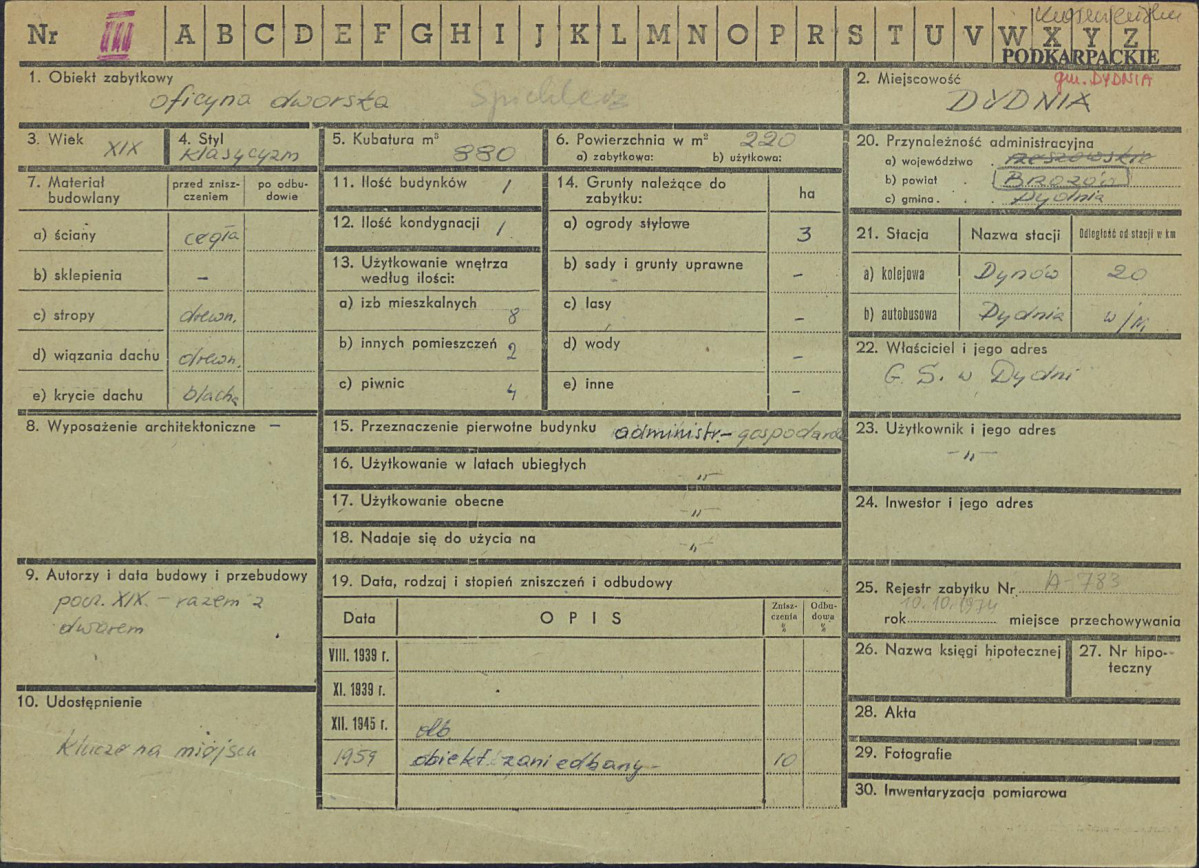 Nr III A B C D E F G H I J K L M N O P R S T U V W X Y Z
PODKARPACKIE
1. Obiekt zabytkowy
oficyna dworska Spichlerz
2. Miejscowość gm. DYDNIA
DYDNIA
3. Wiek XIX
4. Styl klasycyzm
5. Kubatura m³ 880
6. Powierzchnia w m² 220
a) zabytkowa: b) użytkowa:
7. Materiał budowlany
przed zniszczeniem
po odbudowie
a) ściany cegła
b) sklepienia –
c) stropy drewn.
d) wiązania dachu drewn.
e) krycie dachu blacha
8. Wyposażenie architektoniczne –
9. Autorzy i data budowy i przebudowy
pocz. XIX. – razem z
dworem
10. Udostępnienie
klucze na miejscu
11. Ilość budynków 1
12. Ilość kondygnacji 1
13. Użytkowanie wnętrza
według ilości:
a) izb mieszkalnych 8
b) innych pomieszczeń 2
c) piwnic 4
14. Grunty należące do
zabytku: ha
a) ogrody stylowe 3
b) sady i grunty uprawne –
c) lasy –
d) wody –
e) inne –
15. Przeznaczenie pierwotne budynku administr.– gospodarcz
16. Użytkowanie w latach ubiegłych –„–
17. Użytkowanie obecne –„–
18. Nadaje się do użycia na –„–
19. Data, rodzaj i stopień zniszczeń i odbudowy
Data OPIS Zniszczenia % Odbudowa %
VIII. 1939 r.
XI. 1939 r.
XII. 1945 r. db
1959 obiekt zaniedbany 10
20. Przynależność administracyjna
a) województwo . rzeszowskie
b) powiat . BRZOZÓW
c) gmina . Dydnia
21. Stacja Nazwa stacji Odległość od stacji w km
a) kolejowa Dynów 20
b) autobusowa Dydnia w/m
22. Właściciel i jego adres
G. S. w Dydni
23. Użytkownik i jego adres
–„–
24. Inwestor i jego adres
25. Rejestr zabytku Nr A-783
10.10.1974
rok miejsce przechowywania
26. Nazwa księgi hipotecznej
27. Nr hipoteczny
28. Akta
29. Fotografie
30. Inwentaryzacja pomiarowa